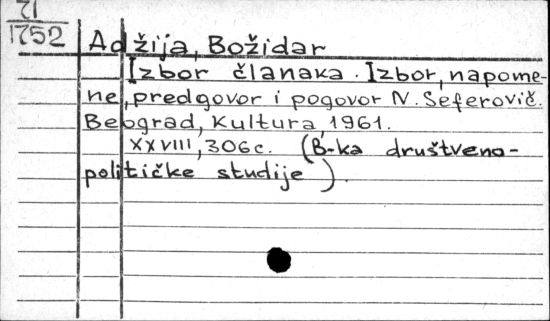 71
1752
Adžija, Božidar
Izbor članaka. Izbor, napome-
ne, predgovor i pogovor N. Seferovič.
Beograd, Kultura, 1961.
XXVIII, 306c. (B-ka društveno-
političke studije).